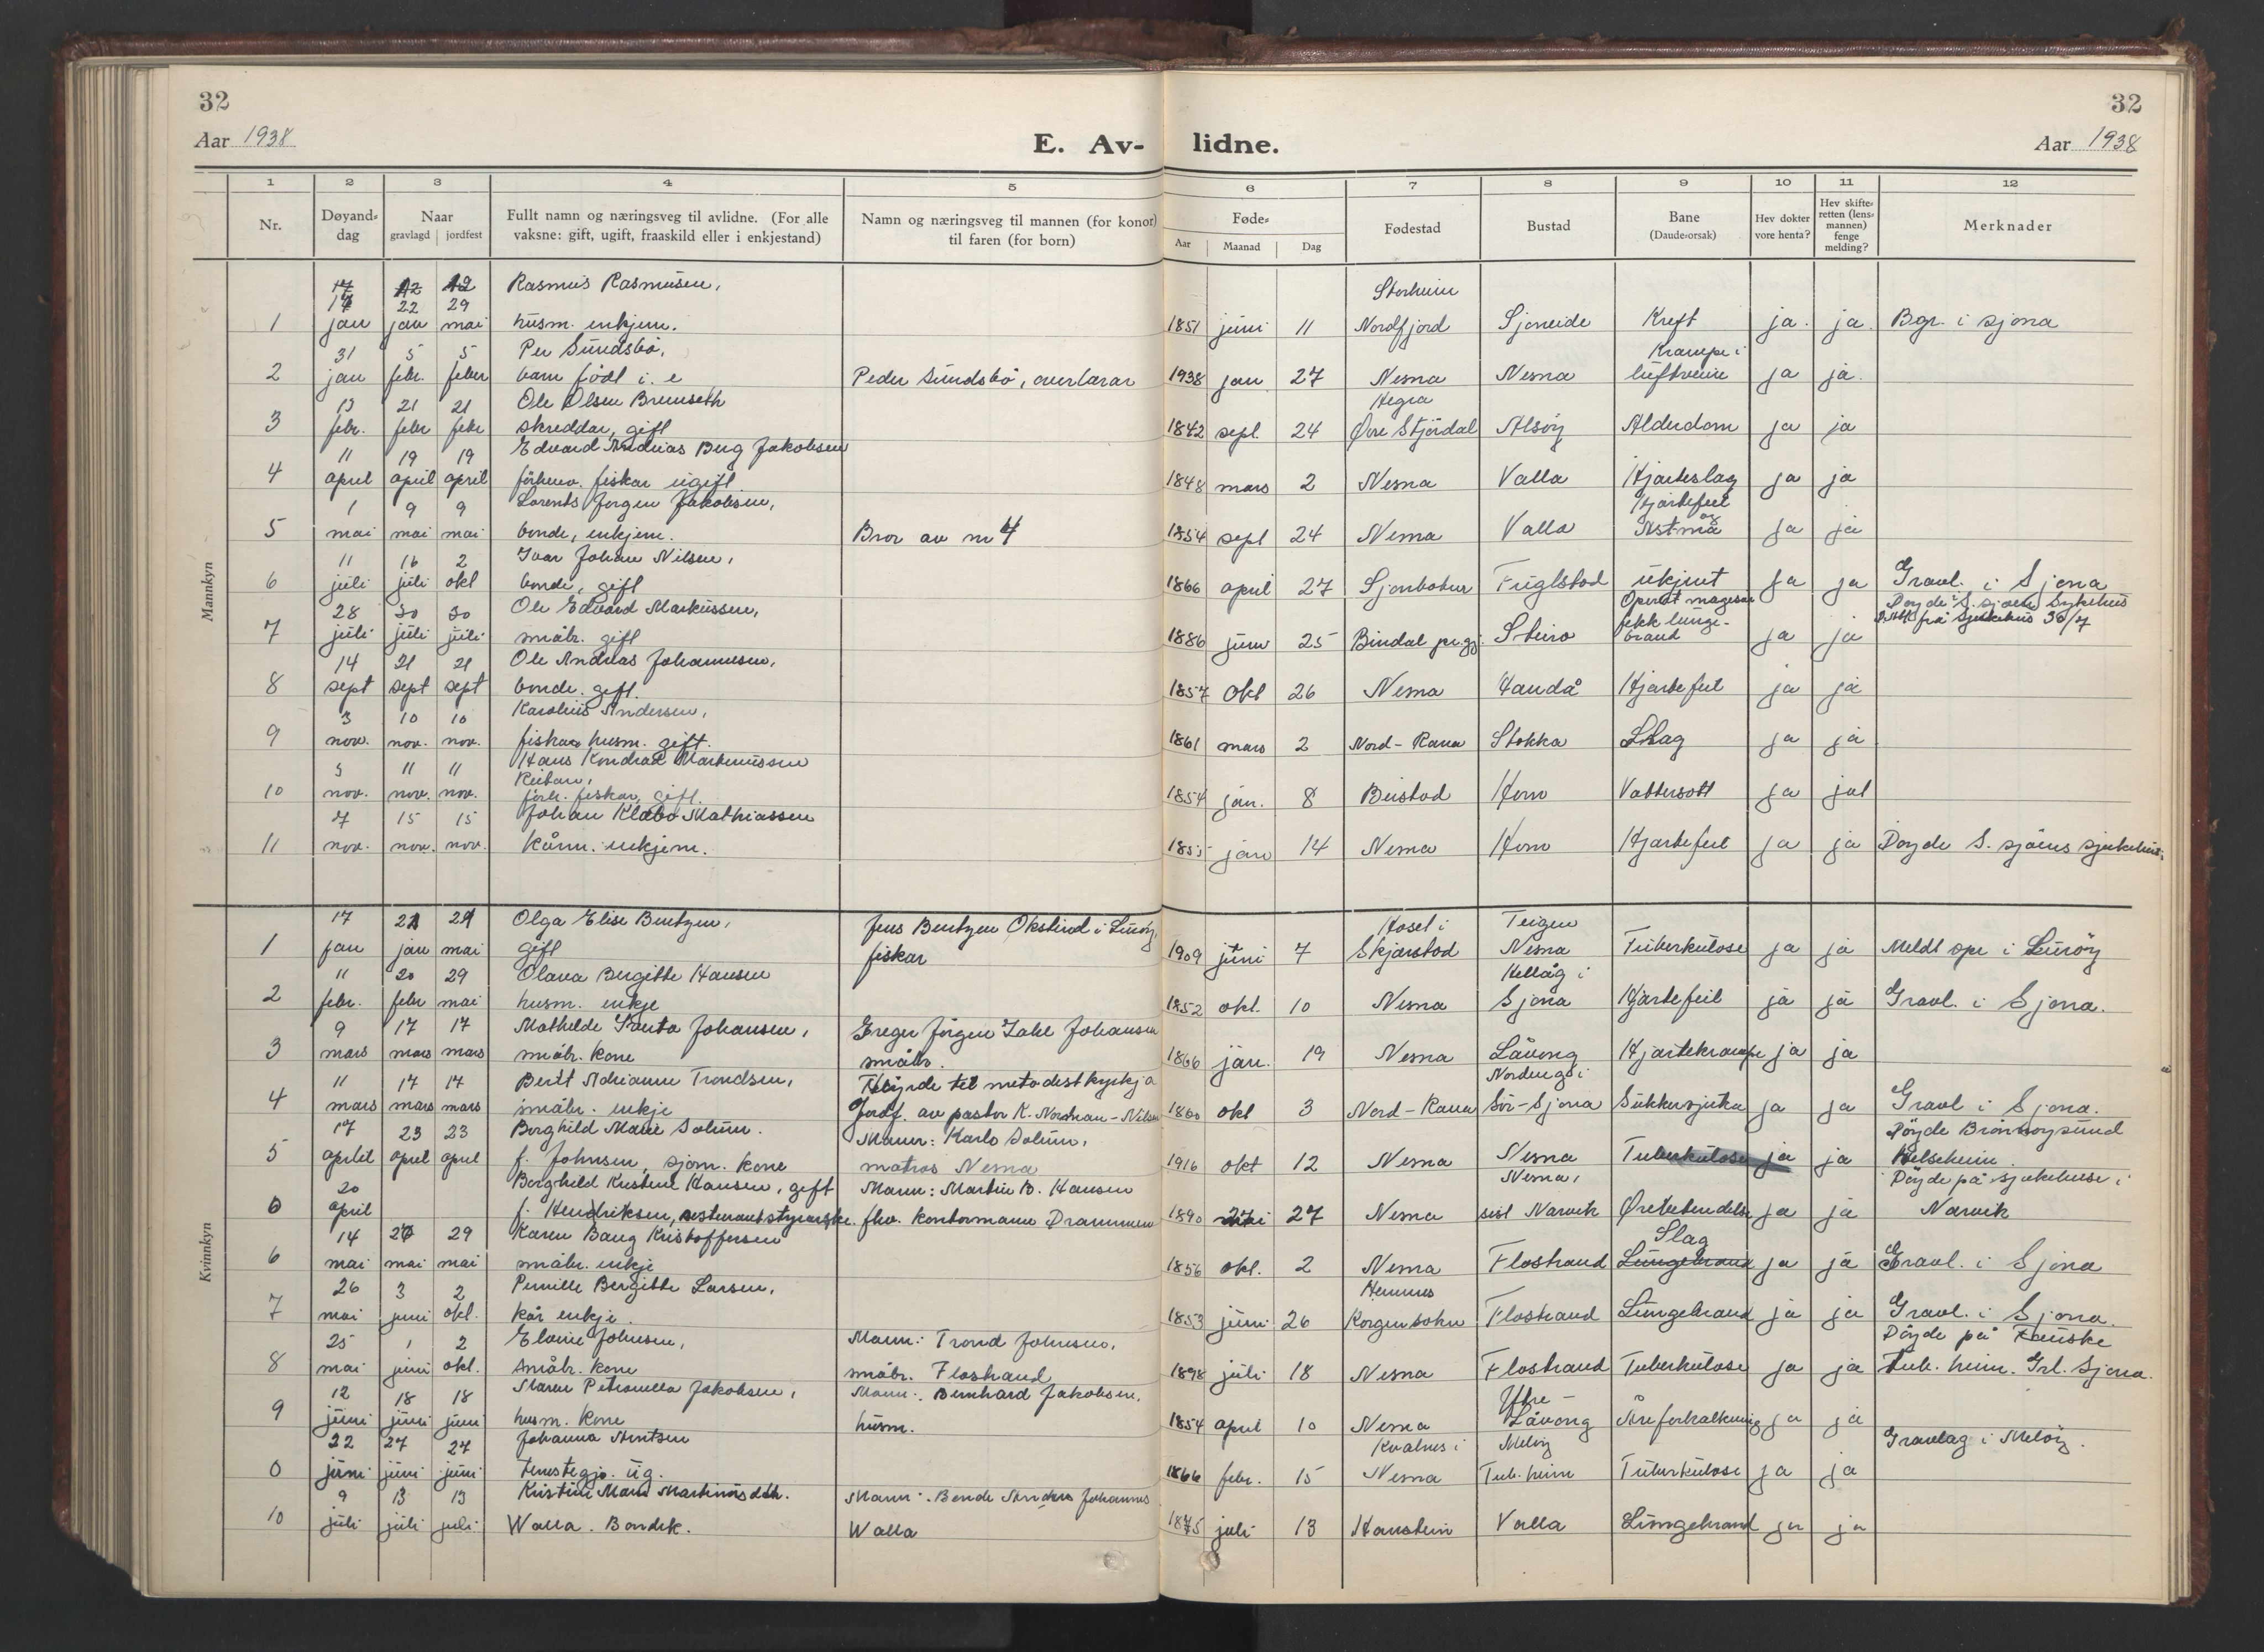 32
32
Aar 1938
E. Av- lidne.
Aar 1938
1 2 3 4 5 6 7 8 9 10 11 12
Nr.
Døyand-dag
Naar gravlagd jordfest
Fullt namn og næringsveg til avlidne. (For alle vaksne: gift, ugift, fraaskild eller i enkjestand)
Namn og næringsveg til mannen (for konor) til faren (for born)
Føde- Aar Maanad Dag
Fødestad
Bustad
Bane (Daude-orsak)
Hev dokter vore henta?
Hev skifteretten (lensmannen) fenge melding?
Merknader
Mannkyn
17 22 29 Rasmus Rasmusen, Storheim
1 jan jan mai husm. enkjem. 1851 juni 11 Nordfjord Sjoneide Kreft ja. ja. Bgr. i Sjona
31 5 5 Per Sundsbö, Krampe i
2 jan febr. feber barn födt i. e Peder Sundsbö, overlærar 1938 jan 27 Nesna Nesna luftveiene ja ja.
13 21 21 Ole Olsen Bremseth Hegra
3 febr. febr febr skreddar, gift 1842 sept. 24 Øvre Stjördal Alsöy Alderdom ja ja
11 19 19 Edvard Andreas Berg Jakobsen
4 april april april förhenv. fiskar ugift 1848 mars 2 Nesna Valla Hjarteslag ja ja
1 9 9 Lorents Jørgen Jakobsen, Hjartefeil og
5 mai mai mai bonde, enkjem. Bror av nr 4 1854 sept 24 Nesna Valla Astma ja ja
11 16 2 Ivar Johan Nilsen,
6 juli juli okt bonde, gift 1866 april 27 Sjonbotn Fuglstad ukjent ja ja Gravl. i Sjona
28 30 30 Ole Edvard Markussen, Operert magesår Døyde S. sjøens Sykehus
7 juli juli juli småbr. gift 1886 juni 25 Bindal pr.gj. Steiro fekk lunge-brand ja ja frå sjukehus 30/7
14 21 21 Ole Andreas Johannesen,
8 sept sept sept bonde. gift. 1857 okt 26 Nesna Handå Hjartefeil ja ja
3 10 10 Karolius Andersen,
9 nov. nov. nov. fiskar husm. gift. 1861 mars 2 Nord-Rana Stokka Slag ja ja
3 11 11 Hans Kondrad Martinussen Reitan,
10 nov. nov. nov. förh. fiskar, gift. 1854 jan. 8 Beistad Hom Vattersott ja jat
7 15 15 Johan Klæbo Mathiassen
11 nov. nov. nov. kårm. enkjem. 1855 jan 14 Nesna Hom Hjartefeil ja ja Døyde S. sjøens sjukehus.
Kvinnkyn
17 21 29 Olga Elise Bentzen, Jens Bentzen Okstind i Luröy, Hoset i Teigen
1 jan jan mai gift fiskar 1909 juni 7 Skjærstad Nesna Tuberkulose ja ja Meldt spr i Luröy
11 20 29 Olava Bergitte Hansen Hellåg i
2 febr. febr mai husm. enkje 1852 okt. 10 Nesna Sjona Hjartefeil ja ja Gravl. i Sjona.
9 17 17 Mathilde Johansen, Greger Jörgen Zahl Johansen
3 mars mars mars småbr. kone småbr. 1866 jan. 19 Nesna Låvong Hjartekrampe ja ja
11 17 17 Berit Adrianne Trondsen, Høyrde til metodistkyrkja Nordeng i
4 mars mars mars småbr. enkje Jordf. av pastor K. Nordman-Nilsen 1860 okt 3 Nord-Rana Sör-Sjona Sukkersjuka ja ja Gravl i Sjona.
17 23 23 Borghild Marie Solum. Mann: Karlo Solum, Döyde Brönnoysund
5 april april april f. Johnsen, sjom. kone matros Nesna 1916 okt 12 Nesna Nesna Tuberkulose ja ja Helseheim.
20 Borghild Kristine Hansen, gift Mann: Martin B. Hansen Nesna, Döyde på sjukehuse i
0 april f. Hendriksen, restaurantstyrarske. fhv. kontormann Drammen 1890 mai 27 Nesna sist Narvik Ørebetendelse ja ja Narvik
14 20 29 Karen Baug Kristoffersen Slag
6 mai mai mai småbr. enkje 1856 okt. 2 Nesna Flostrand Lungebrand ja ja Gravl. i Sjona
26 3 2 Pernille Bergitte Larsen, Hemnes
7 mai juni okt. kår enkje. 1853 juni 26 Korgen sokn Flostrand Lungebrand ja ja Gravl. i Sjona.
25 1 2 Elavie Johnsen, Mann: Trond Johnsen, Döyde på Fauske
8 mai juni okt. Småbr. kone småbr. Flostrand 1898 juli 18 Nesna Flostrand Tuberkulose ja ja Tub. heim. Grl. Sjona.
12 18 18 Maren Petronella Jakobsen, Mann: Bernhard Jakobsen, Ytre-
9 juni juni juni husm. kone husm. 1854 april 10 Nesna Låvong Åreforkalkning ja ja
22 27 27 Johanna Arntsen Kvalnes i Melöy Gravlag i Melöy.
0 juni juni juni tenestegj. ug. 1866 febr. 15 Nesna Tub. heim Tuberkulose ja ja
9 13 13 Kristine Marie Martinusdtr. Mann: Bonde Anders Johannes
10 juli juli juli Walla. Bondek. Walla 1875 juli 13 Hanstein Valla Lungebrand ja ja